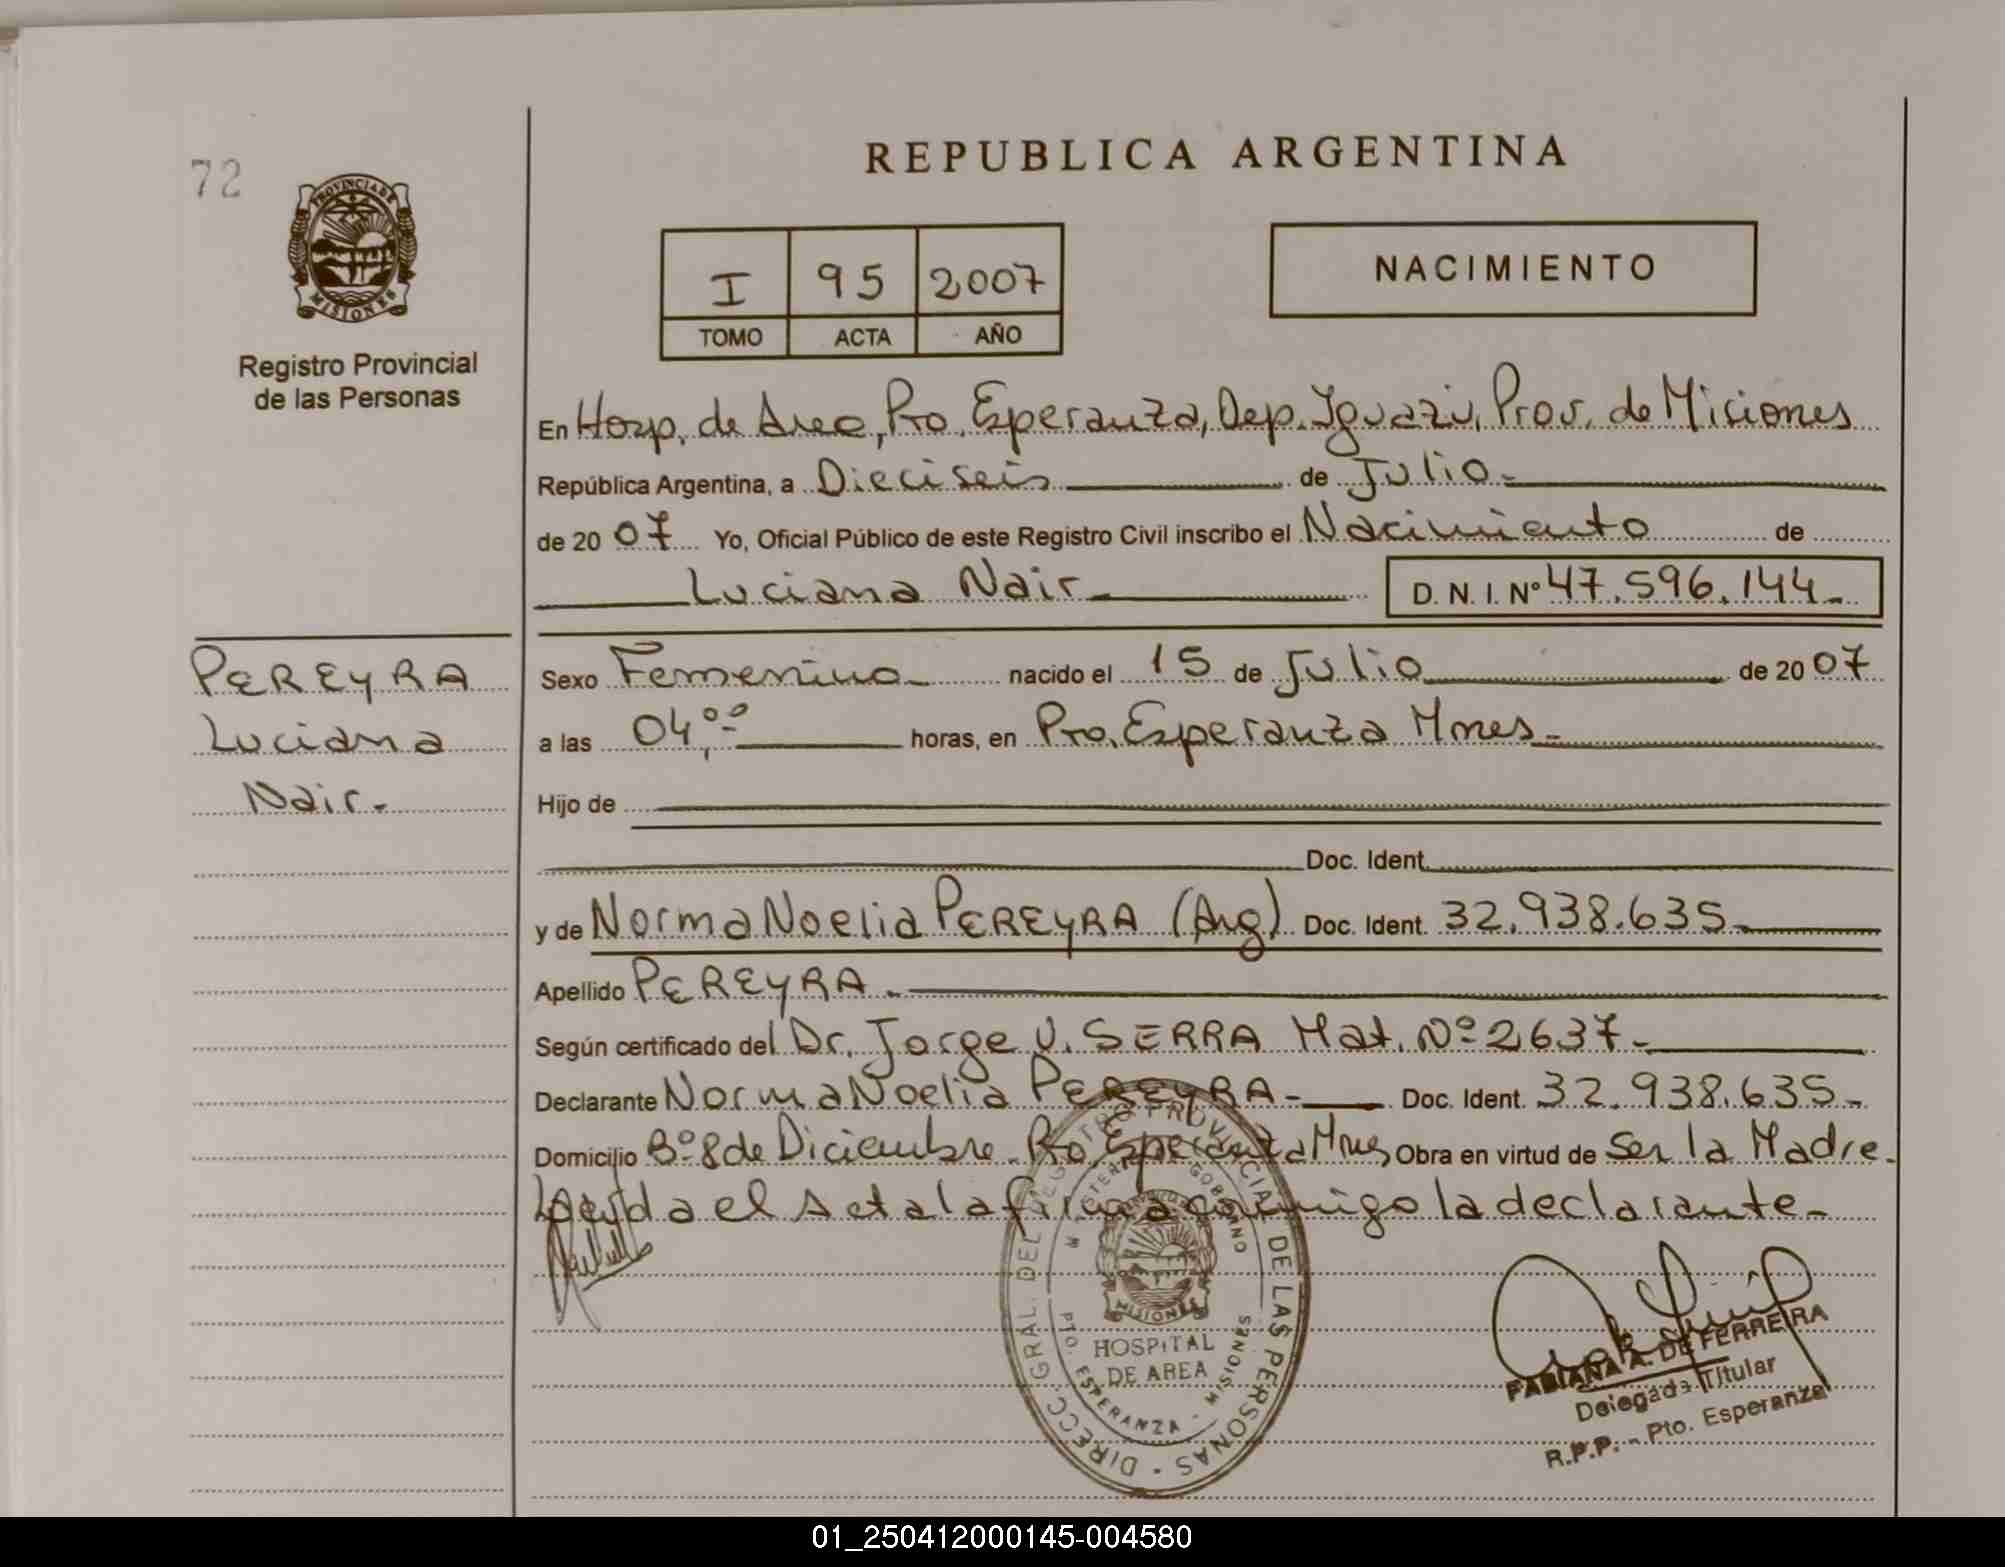 72
REPUBLICA ARGENTINA
PROVINCIA DE
MISIONES
Registro Provincial
de las Personas
I 95 2007
TOMO ACTA AÑO
NACIMIENTO
En Hosp. de Area, Pto. Esperanza, Dep. Iguazú, Prov. de Miciones
República Argentina, a Dieciseis de Julio.
de 20 07 Yo, Oficial Público de este Registro Civil inscribo el Nacimiento de
Luciana Nair D. N. I. Nº 47.596.144.
PEREYRA
Luciana
Nair.
Sexo Femenino nacido el 15 de Julio de 20 07
a las 04,00 horas, en Pto. Esperanza Mnes.
Hijo de
Doc. Ident.
y de Norma Noelia PEREYRA (Arg) Doc. Ident. 32.938.635.
Apellido PEREYRA.
Según certificado del Dr. Jorge V. SERRA Mat. Nº 2637.
Declarante Norma Noelia PEREYRA Doc. Ident. 32.938.635.
Domicilio Bº 8 de Diciembre. Pto. Esperanza Mnes Obra en virtud de Ser la Madre.
Leida el acta la firma conmigo la declarante.
DIRECC. GRAL. DEL REGISTRO PROVINCIAL DE LAS PERSONAS
MINISTERIO GOBIERNO
MISIONES
HOSPITAL
DE AREA
PTO. ESPERANZA - MISIONES
FABIANA A. DE FERREIRA
Delegada Titular
R.P.P. - Pto. Esperanza
01_250412000145-004580